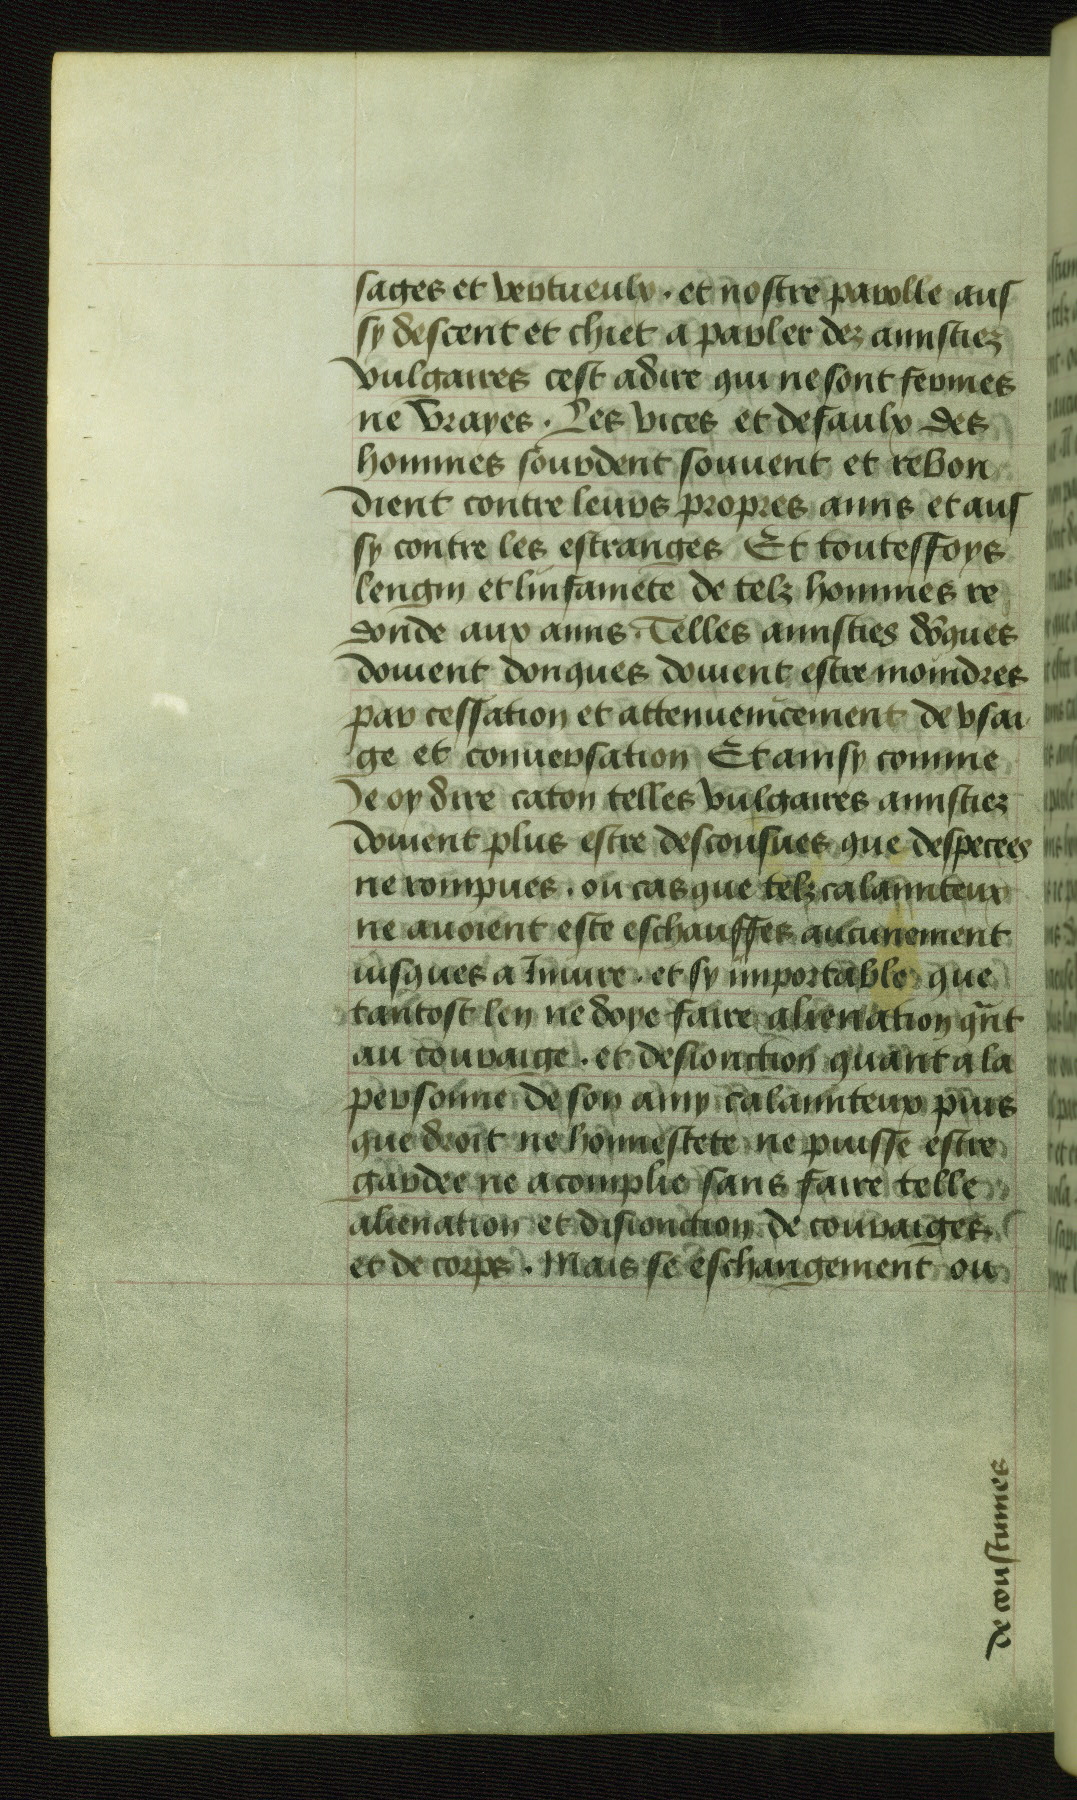 sages et vertueulx · et nostre parolle aus
sy descent et chiet a parler dez amistiez
vulgaires cest adire qui ne sont fermes
ne vrayes · Les vices et defaulx des
hommes sourdent souuent et rebon
dient contre leurs propres amis et aus
sy contre les estranges Et touteffoys
lengin et linfamete de telz hommes re
donde aux amis · Telles amisties dōques
doiuent donques doiuent estre moindres
par cessation et attenuemcement de vsai
ge et conuersation Et ainsy comme
Je oy dire caton telles vulgaires amistiez
doiuent plus estre descousues que despecees
ne rompues · ou cas que telz calamiteux
ne auoient este eschauffes aucunement
iusques a Iniure · et sy importable que
tantost len ne doye faire alienation qn̄t
au couraige · et desionction quant a la
personne de son amy calamiteux puis
que droit ne honnestete ne puisse estre
gardee ne acomplie sans faire telle
alienation et disionction de couraiges
et de corps · Mais se eschangement ou
de coustumes